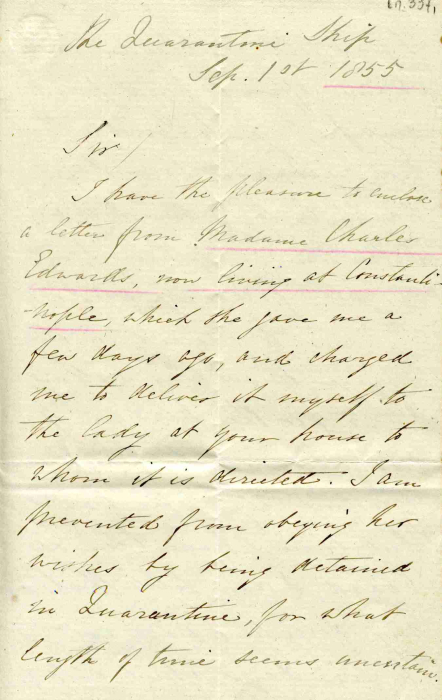 The Quarantine Ship
Sep. 1st 1855
Sir/
I have the pleasure to enclose
a letter from Madame Charles
Edwards, now living at Constanti-
-nople, which she gave me a
few days ago, and charged
me to deliver it myself to
the lady at your house to
whom it is directed. I am
prevented from obeying her
wishes by being detained
in Quarantine, for what
length of time seems uncertain.